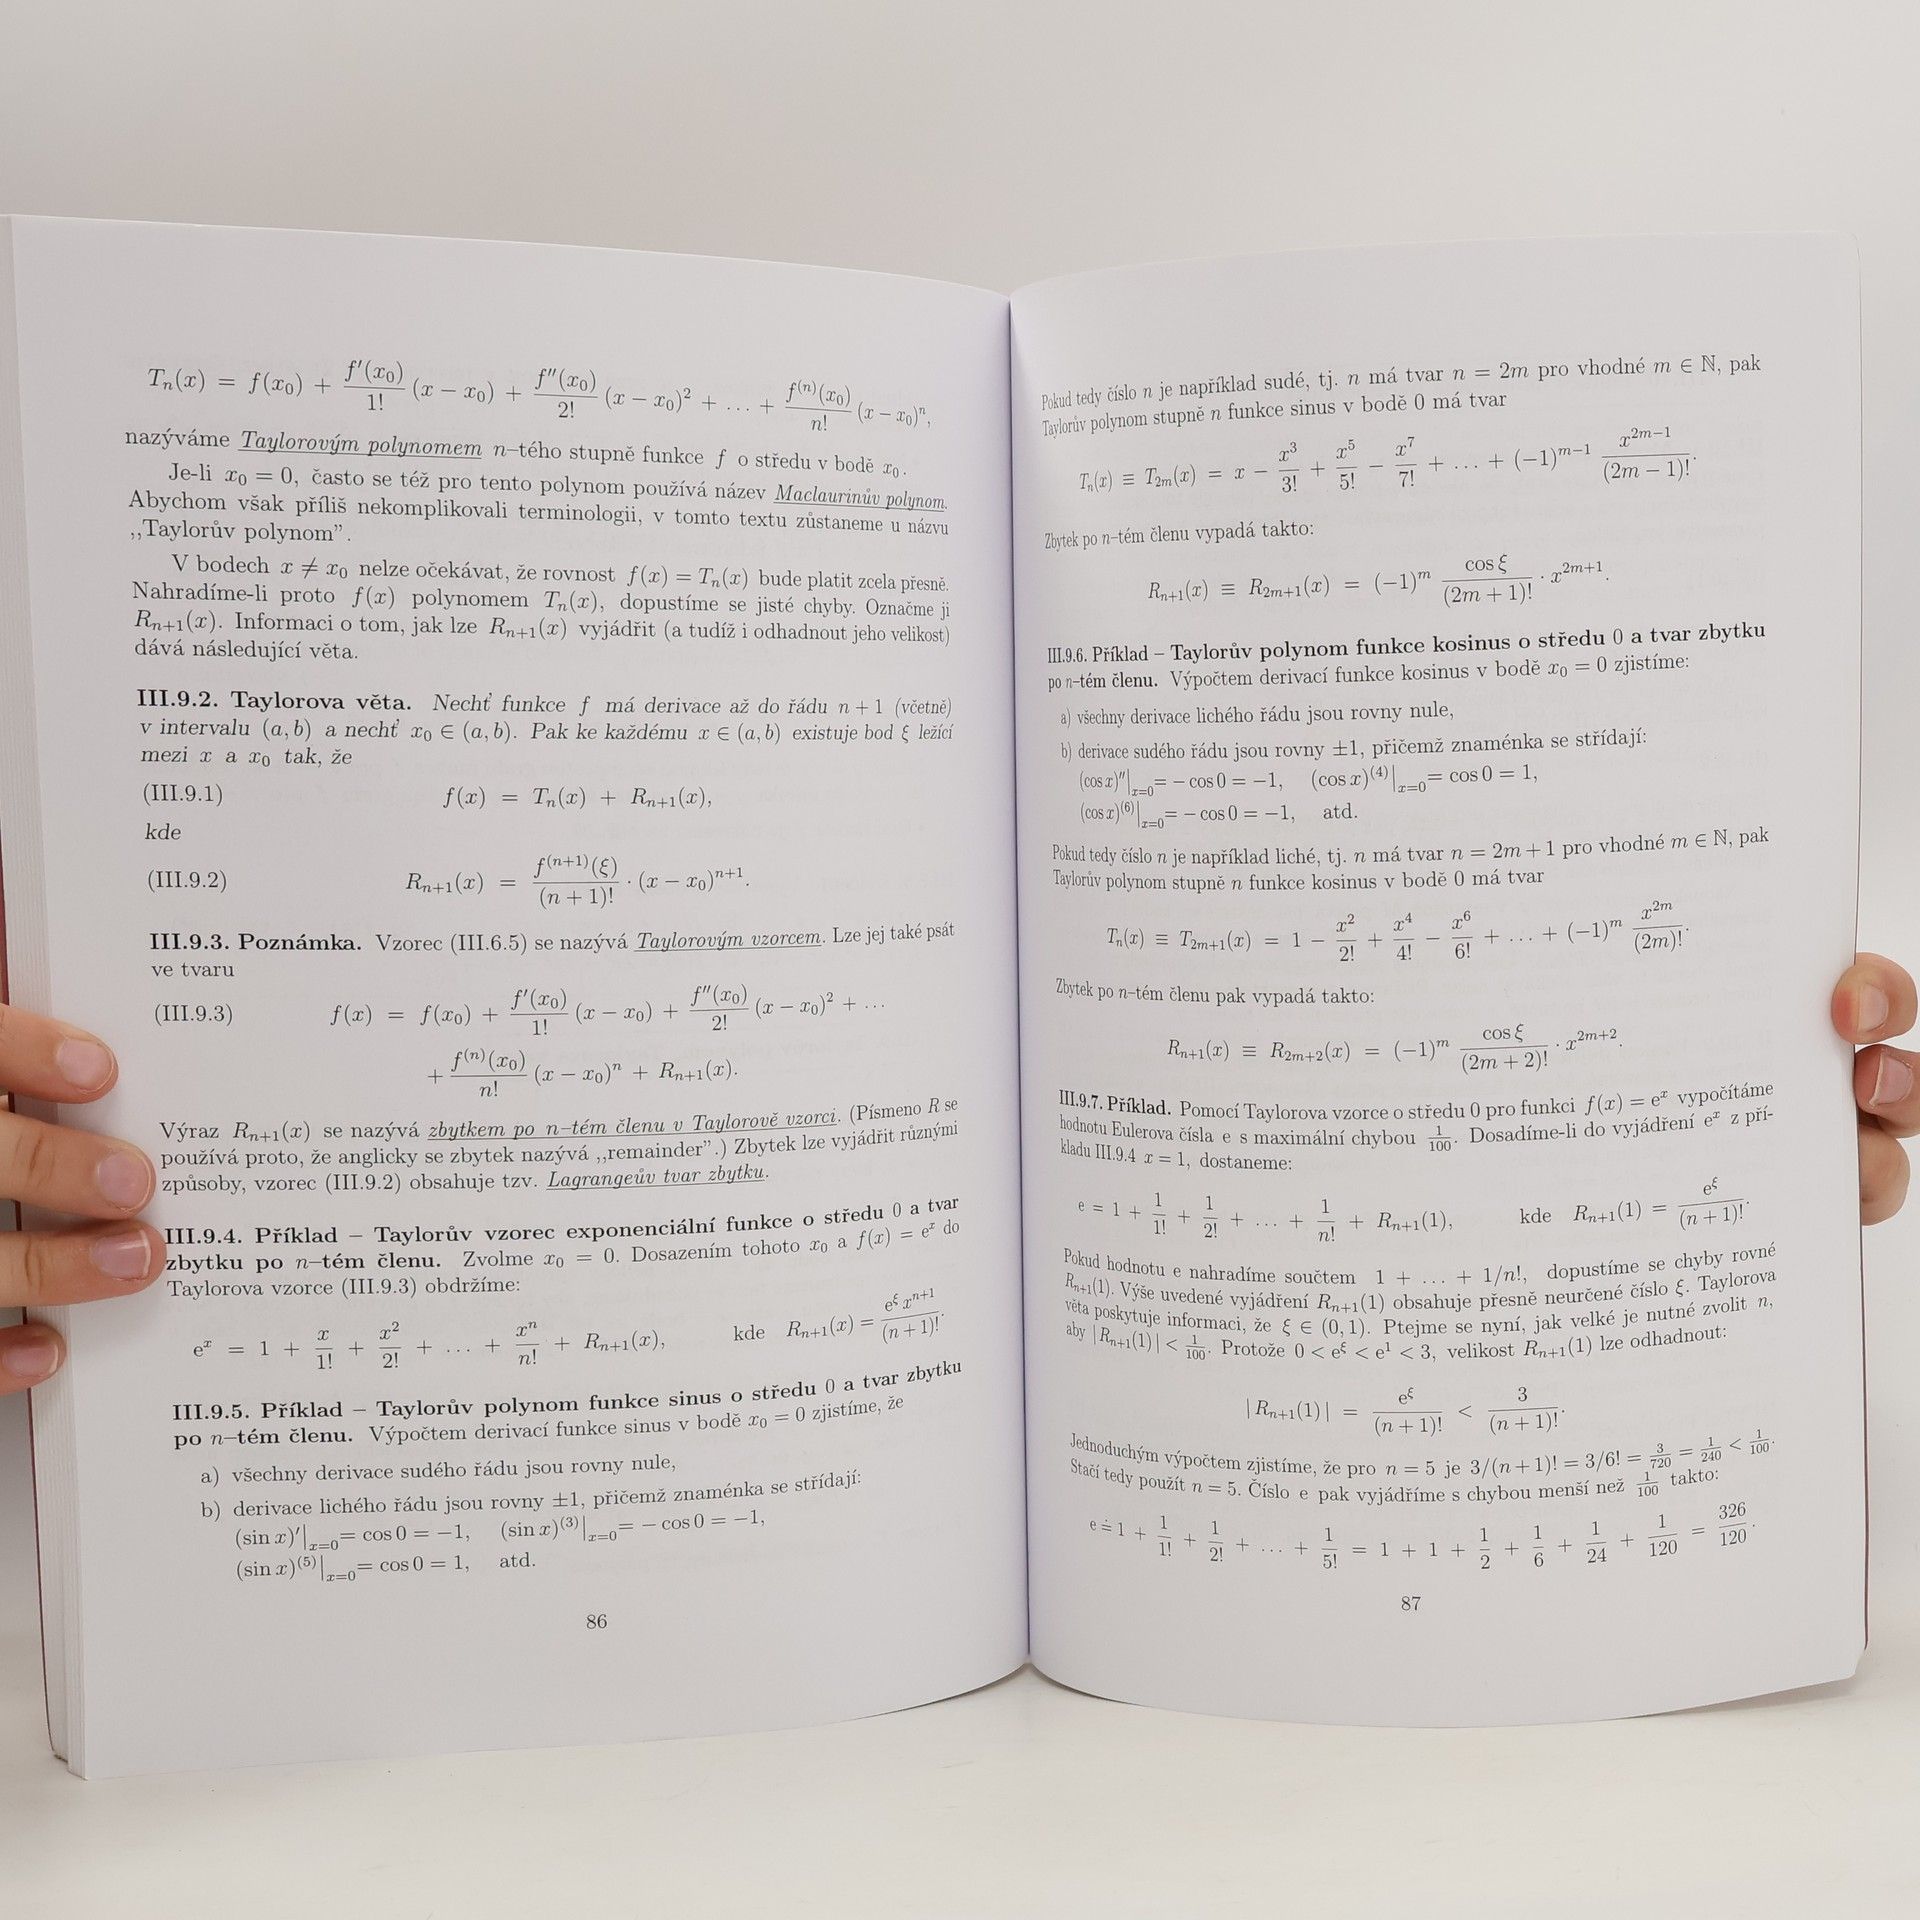 T_n(x) = f(x_0) + \frac{f'(x_0)}{1!} (x − x_0) + \frac{f''(x_0)}{2!} (x − x_0)^2 + … + \frac{f^{(n)}(x_0)}{n!} (x − x_0)^n,
nazýváme Taylorovým polynomem n–tého stupně funkce f o středu v bodě x_0.
Je-li x_0 = 0, často se též pro tento polynom používá název Maclaurinův polynom.
Abychom však příliš nekomplikovali terminologii, v tomto textu zůstaneme u názvu
,,Taylorův polynom”.
V bodech x ≠ x_0 nelze očekávat, že rovnost f(x) = T_n(x) bude platit zcela přesně.
Nahradíme-li proto f(x) polynomem T_n(x), dopustíme se jisté chyby. Označme ji
R_{n+1}(x). Informaci o tom, jak lze R_{n+1}(x) vyjádřit (a tudíž i odhadnout jeho velikost)
dává následující věta.
III.9.2. Taylorova věta. Nechť funkce f má derivace až do řádu n + 1 (včetně)
v intervalu (a, b) a nechť x_0 ∈ (a, b). Pak ke každému x ∈ (a, b) existuje bod ξ ležící
mezi x a x_0 tak, že
(III.9.1) f(x) = T_n(x) + R_{n+1}(x),
kde
(III.9.2) R_{n+1}(x) = \frac{f^{(n+1)}(ξ)}{(n + 1)!} · (x − x_0)^{n+1}.
III.9.3. Poznámka. Vzorec (III.6.5) se nazývá Taylorovým vzorcem. Lze jej také psát
ve tvaru
(III.9.3) f(x) = f(x_0) + \frac{f'(x_0)}{1!} (x − x_0) + \frac{f''(x_0)}{2!} (x − x_0)^2 + …
+ \frac{f^{(n)}(x_0)}{n!} (x − x_0)^n + R_{n+1}(x).
Výraz R_{n+1}(x) se nazývá zbytkem po n–tém členu v Taylorově vzorci. (Písmeno R se
používá proto, že anglicky se zbytek nazývá ,,remainder”.) Zbytek lze vyjádřit různými
způsoby, vzorec (III.9.2) obsahuje tzv. Lagrangeův tvar zbytku.
III.9.4. Příklad – Taylorův vzorec exponenciální funkce o středu 0 a tvar
zbytku po n–tém členu. Zvolme x_0 = 0. Dosazením tohoto x_0 a f(x) = e^x do
Taylorova vzorce (III.9.3) obdržíme:
e^x = 1 + \frac{x}{1!} + \frac{x^2}{2!} + … + \frac{x^n}{n!} + R_{n+1}(x), kde R_{n+1}(x) = \frac{e^ξ x^{n+1}}{(n + 1)!}.
III.9.5. Příklad – Taylorův polynom funkce sinus o středu 0 a tvar zbytku
po n–tém členu. Výpočtem derivací funkce sinus v bodě x_0 = 0 zjistíme, že
a) všechny derivace sudého řádu jsou rovny nule,
b) derivace lichého řádu jsou rovny ±1, přičemž znaménka se střídají:
(sin x)'|_{x=0} = cos 0 = −1, (sin x)^{(3)}|_{x=0} = − cos 0 = −1,
(sin x)^{(5)}|_{x=0} = cos 0 = 1, atd.
86
Pokud tedy číslo n je například sudé, tj. n má tvar n = 2m pro vhodné m ∈ ℕ, pak
Taylorův polynom stupně n funkce sinus v bodě 0 má tvar
T_n(x) ≡ T_{2m}(x) = x − \frac{x^3}{3!} + \frac{x^5}{5!} − \frac{x^7}{7!} + … + (−1)^{m−1} \frac{x^{2m−1}}{(2m − 1)!}.
Zbytek po n–tém členu vypadá takto:
R_{n+1}(x) ≡ R_{2m+1}(x) = (−1)^m \frac{cos ξ}{(2m + 1)!} · x^{2m+1}.
III.9.6. Příklad – Taylorův polynom funkce kosinus o středu 0 a tvar zbytku
po n–tém členu. Výpočtem derivací funkce kosinus v bodě x_0 = 0 zjistíme:
a) všechny derivace lichého řádu jsou rovny nule,
b) derivace sudého řádu jsou rovny ±1, přičemž znaménka se střídají:
(cos x)''|_{x=0} = − cos 0 = −1, (cos x)^{(4)}|_{x=0} = cos 0 = 1,
(cos x)^{(6)}|_{x=0} = − cos 0 = −1, atd.
Pokud tedy číslo n je například liché, tj. n má tvar n = 2m + 1 pro vhodné m ∈ ℕ, pak
Taylorův polynom stupně n funkce kosinus v bodě 0 má tvar
T_n(x) ≡ T_{2m+1}(x) = 1 − \frac{x^2}{2!} + \frac{x^4}{4!} − \frac{x^6}{6!} + … + (−1)^m \frac{x^{2m}}{(2m)!}.
Zbytek po n–tém členu pak vypadá takto:
R_{n+1}(x) ≡ R_{2m+2}(x) = (−1)^m \frac{cos ξ}{(2m + 2)!} · x^{2m+2}.
III.9.7. Příklad. Pomocí Taylorova vzorce o středu 0 pro funkci f(x) = e^x vypočítáme
hodnotu Eulerova čísla e s maximální chybou \frac{1}{100}. Dosadíme-li do vyjádření e^x z pří-
kladu III.9.4 x = 1, dostaneme:
e = 1 + \frac{1}{1!} + \frac{1}{2!} + … + \frac{1}{n!} + R_{n+1}(1), kde R_{n+1}(1) = \frac{e^ξ}{(n + 1)!}.
Pokud hodnotu e nahradíme součtem 1 + … + 1/n!, dopustíme se chyby rovné
R_{n+1}(1). Výše uvedené vyjádření R_{n+1}(1) obsahuje přesně neurčené číslo ξ. Taylorova
věta poskytuje informaci, že ξ ∈ (0, 1). Ptejme se nyní, jak velké je nutné zvolit n,
aby |R_{n+1}(1)| < \frac{1}{100}. Protože 0 < e^ξ < e^1 < 3, velikost R_{n+1}(1) lze odhadnout:
|R_{n+1}(1)| = \frac{e^ξ}{(n + 1)!} < \frac{3}{(n + 1)!}.
Jednoduchým výpočtem zjistíme, že pro n = 5 je 3/(n + 1)! = 3/6! = \frac{3}{720} = \frac{1}{240} < \frac{1}{100}.
Stačí tedy použít n = 5. Číslo e pak vyjádříme s chybou menší než \frac{1}{100} takto:
e ≐ 1 + \frac{1}{1!} + \frac{1}{2!} + … + \frac{1}{5!} = 1 + 1 + \frac{1}{2} + \frac{1}{6} + \frac{1}{24} + \frac{1}{120} = \frac{326}{120}.
87